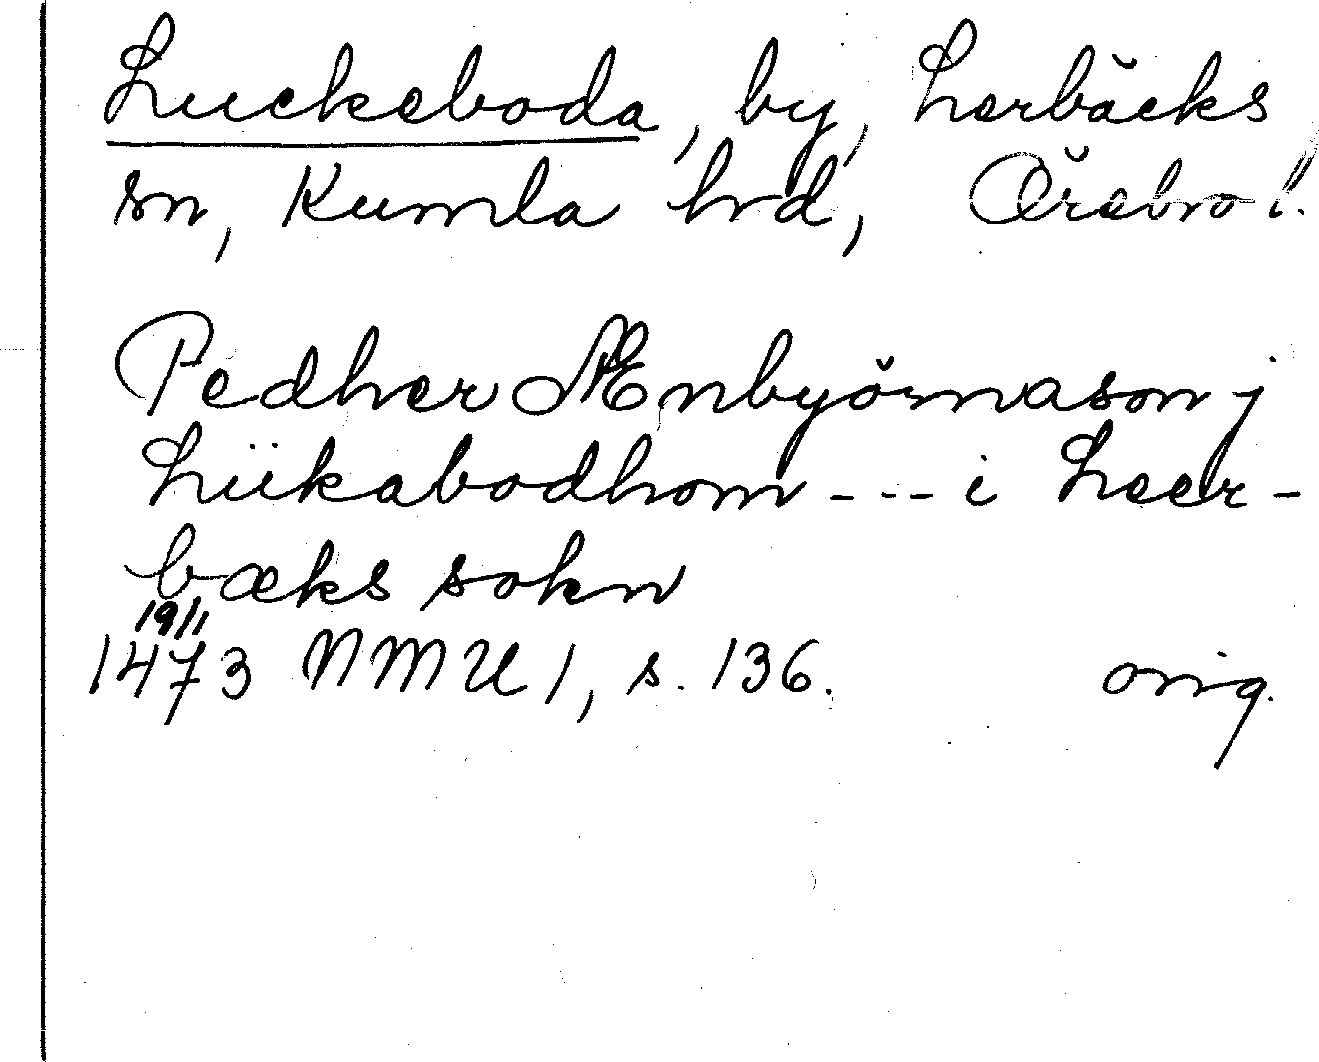 Luckeboda, by, Lerbäcks
sn, Kumla hrd, Örebro l.
Pedher Ænbyörnason j
Lükabodhom --- i Leer-
bæks sokn
19/11
1473 NMU 1, s. 136. orig.